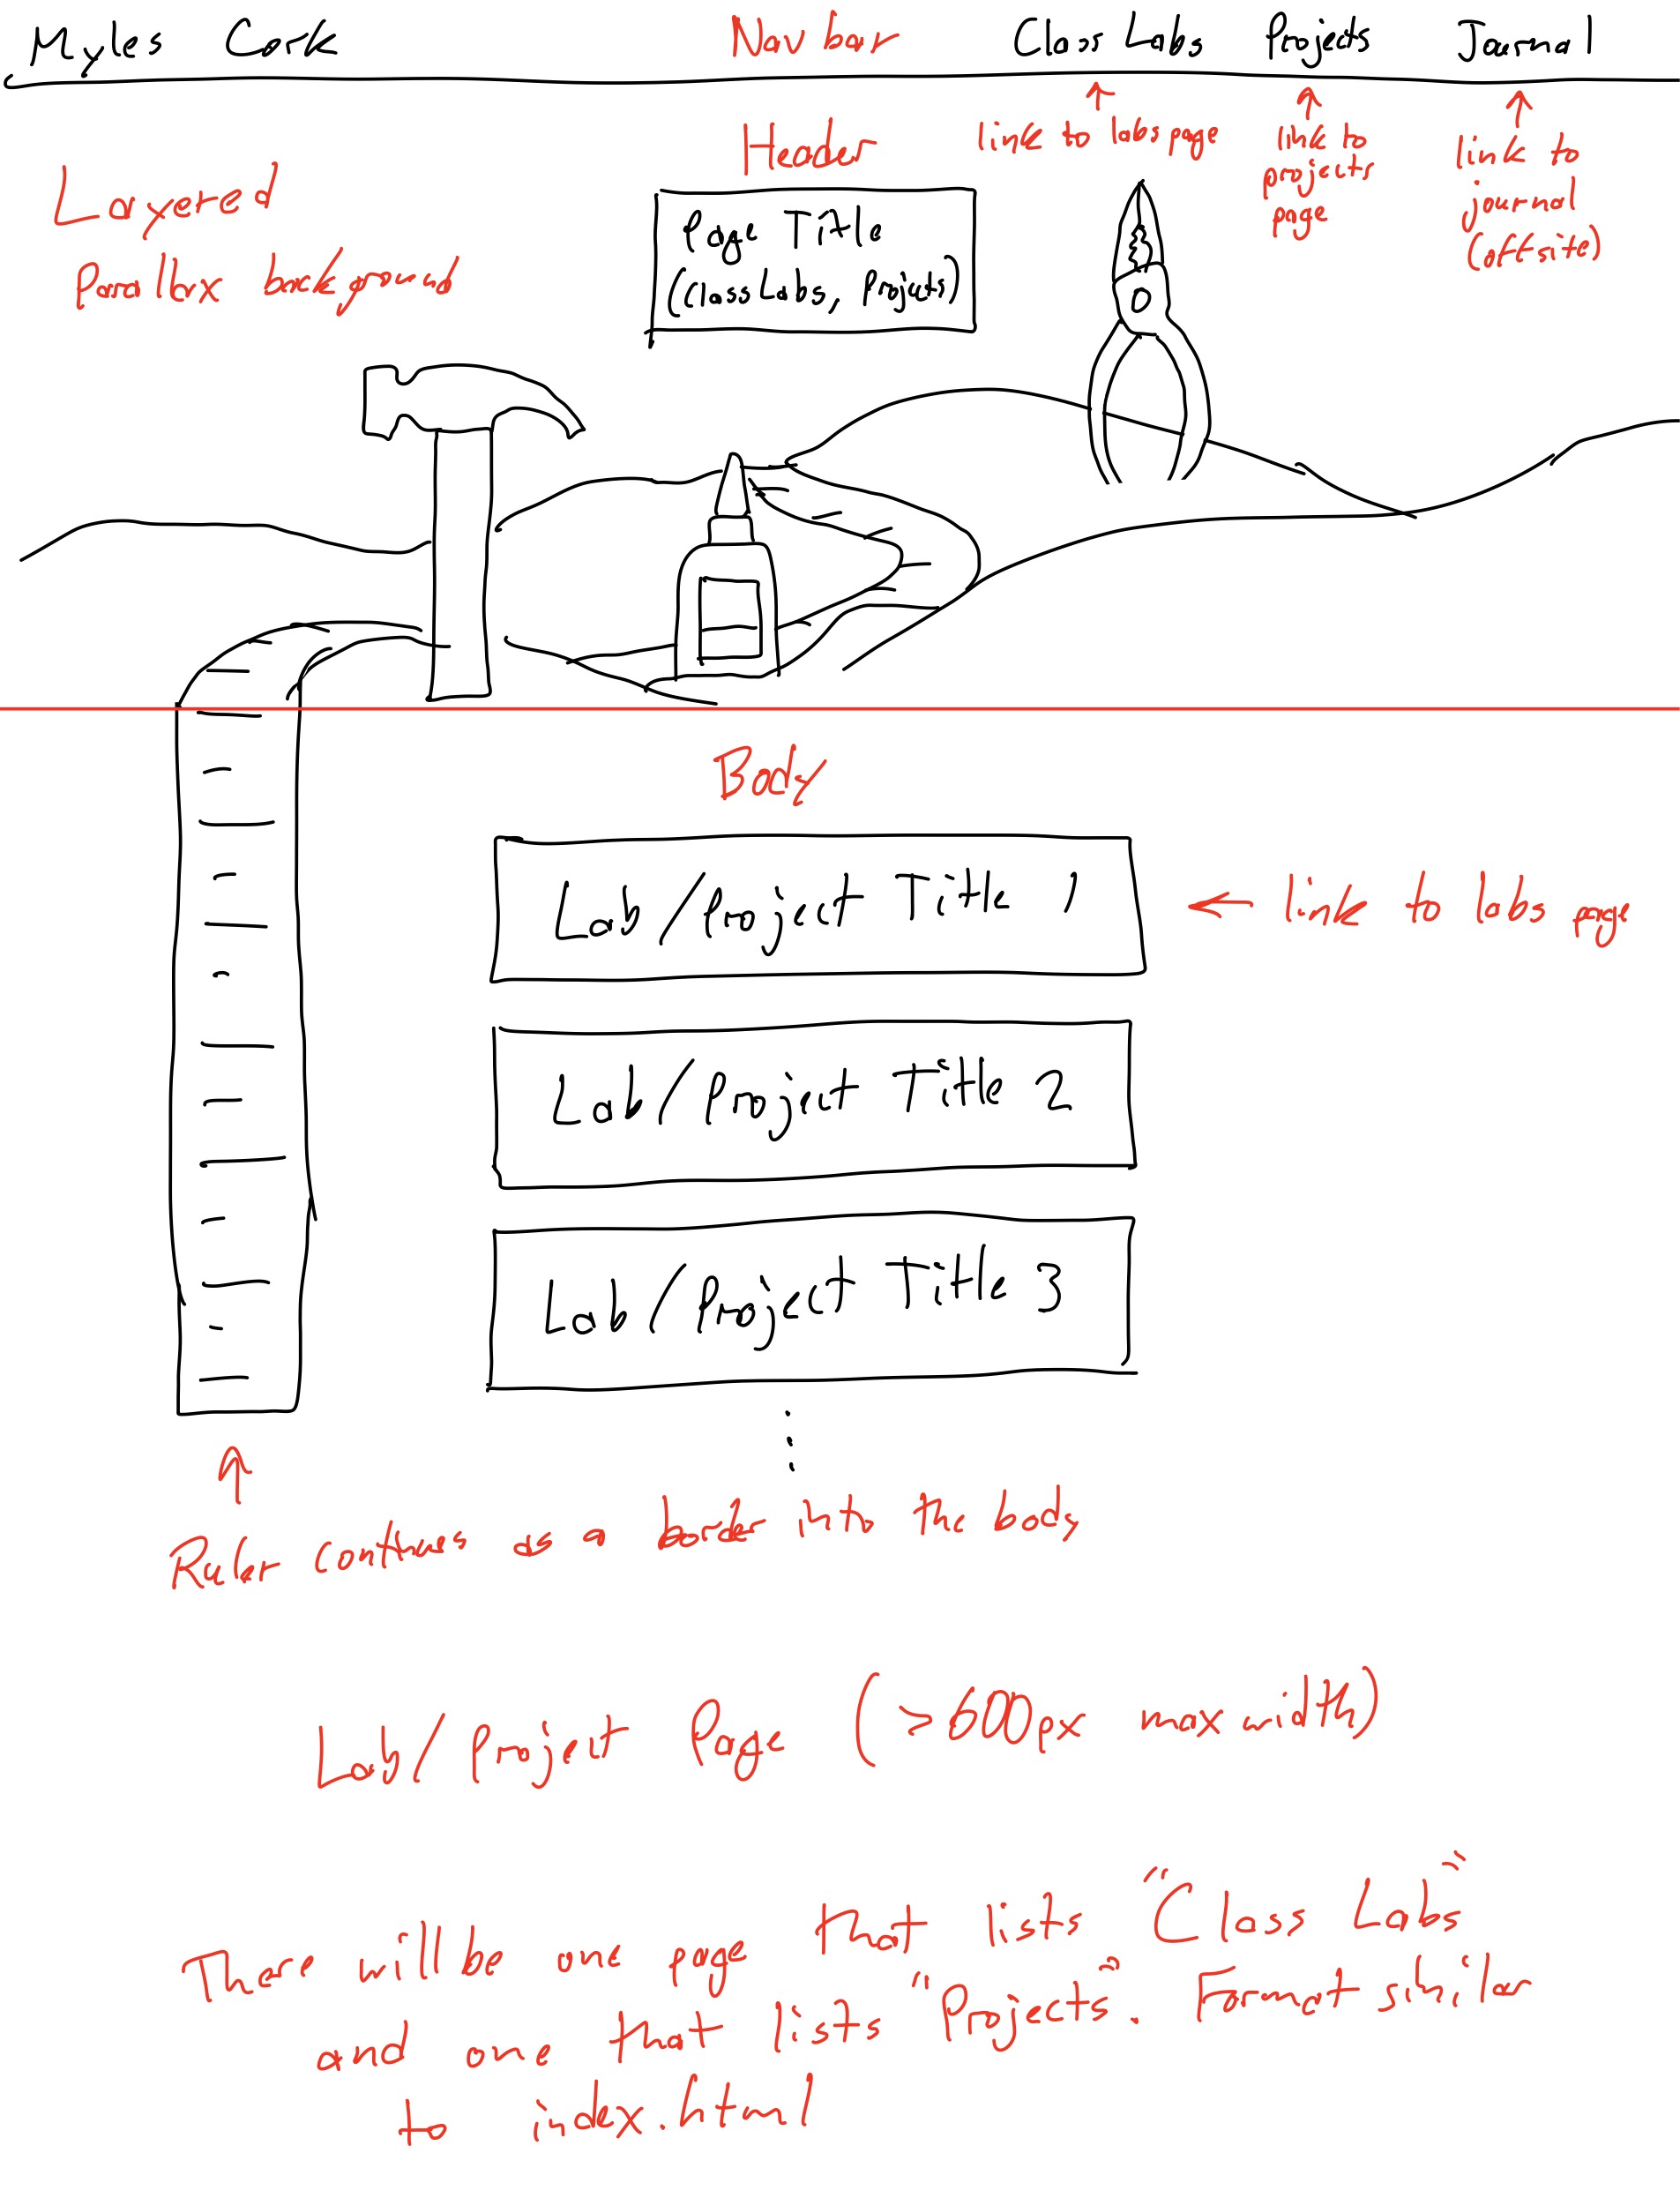 Myles Cook
Nav bar
Class Labs
Projects
Journal
link to labs page
link to
projects
page
link to
journal
(offsite)
Layered
Parallax background
Header
Page Title
(Class Labs, Projects)
Body
Lab/Project Title 1
link to labs page
Lab/Project Title 2
Lab/Project Title 3
Ruler continues as a border into the body
Lab/Project Page (~600px max width)
There will be one page that lists "Class Labs"
and one that lists "Projects". Format similar
to index.html